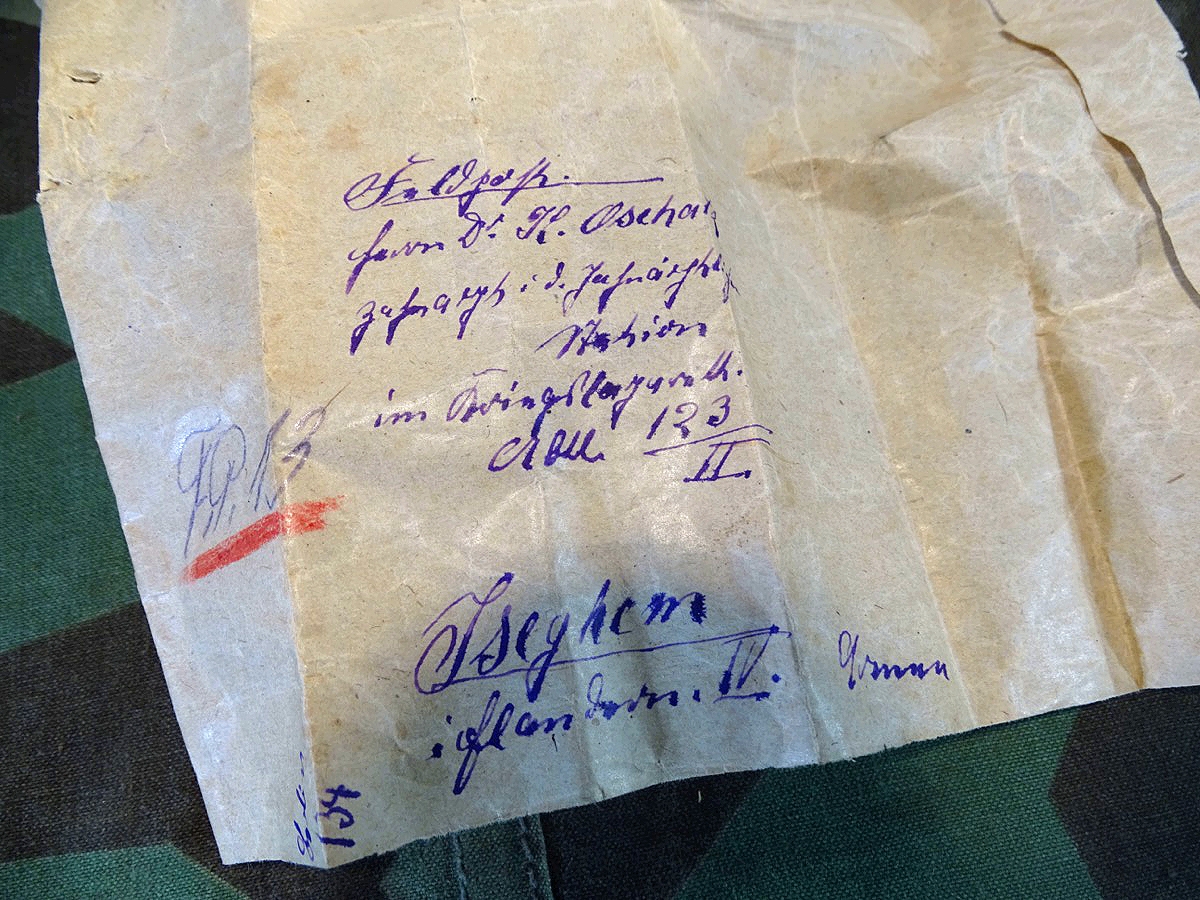 Feldpost.
Herrn Dr. K. Oscha
Zahnarzt i. d. Zahnärztl
Station
im Kriegslazareth.
Abtl. 123
II.
13
Iseghem
i Flandern. IV. Armee
134